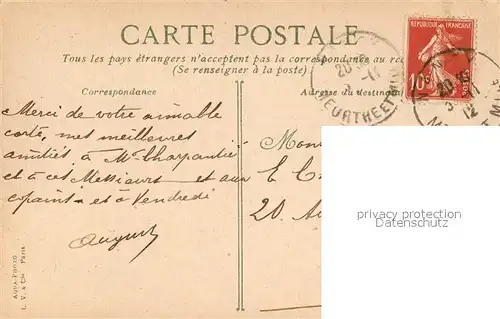 CARTE POSTALE
Tous les pays étrangers n'acceptent pas la correspondance au rec
(Se renseigner à la poste)
Correspondance
Adresse du destinataire
REPUBLIQUE FRANÇAISE
10
POSTES
MEURTHE ET M
Merci de votre aimable
carte, mes meilleures
amitiés à Mr Charpentié
et à ces Messieurs et aux
copains et à Vendredi
August
Mons
E C
20. A
privacy protection
Datenschutz
AQUA-PHOTO
L. V. & Cie Paris